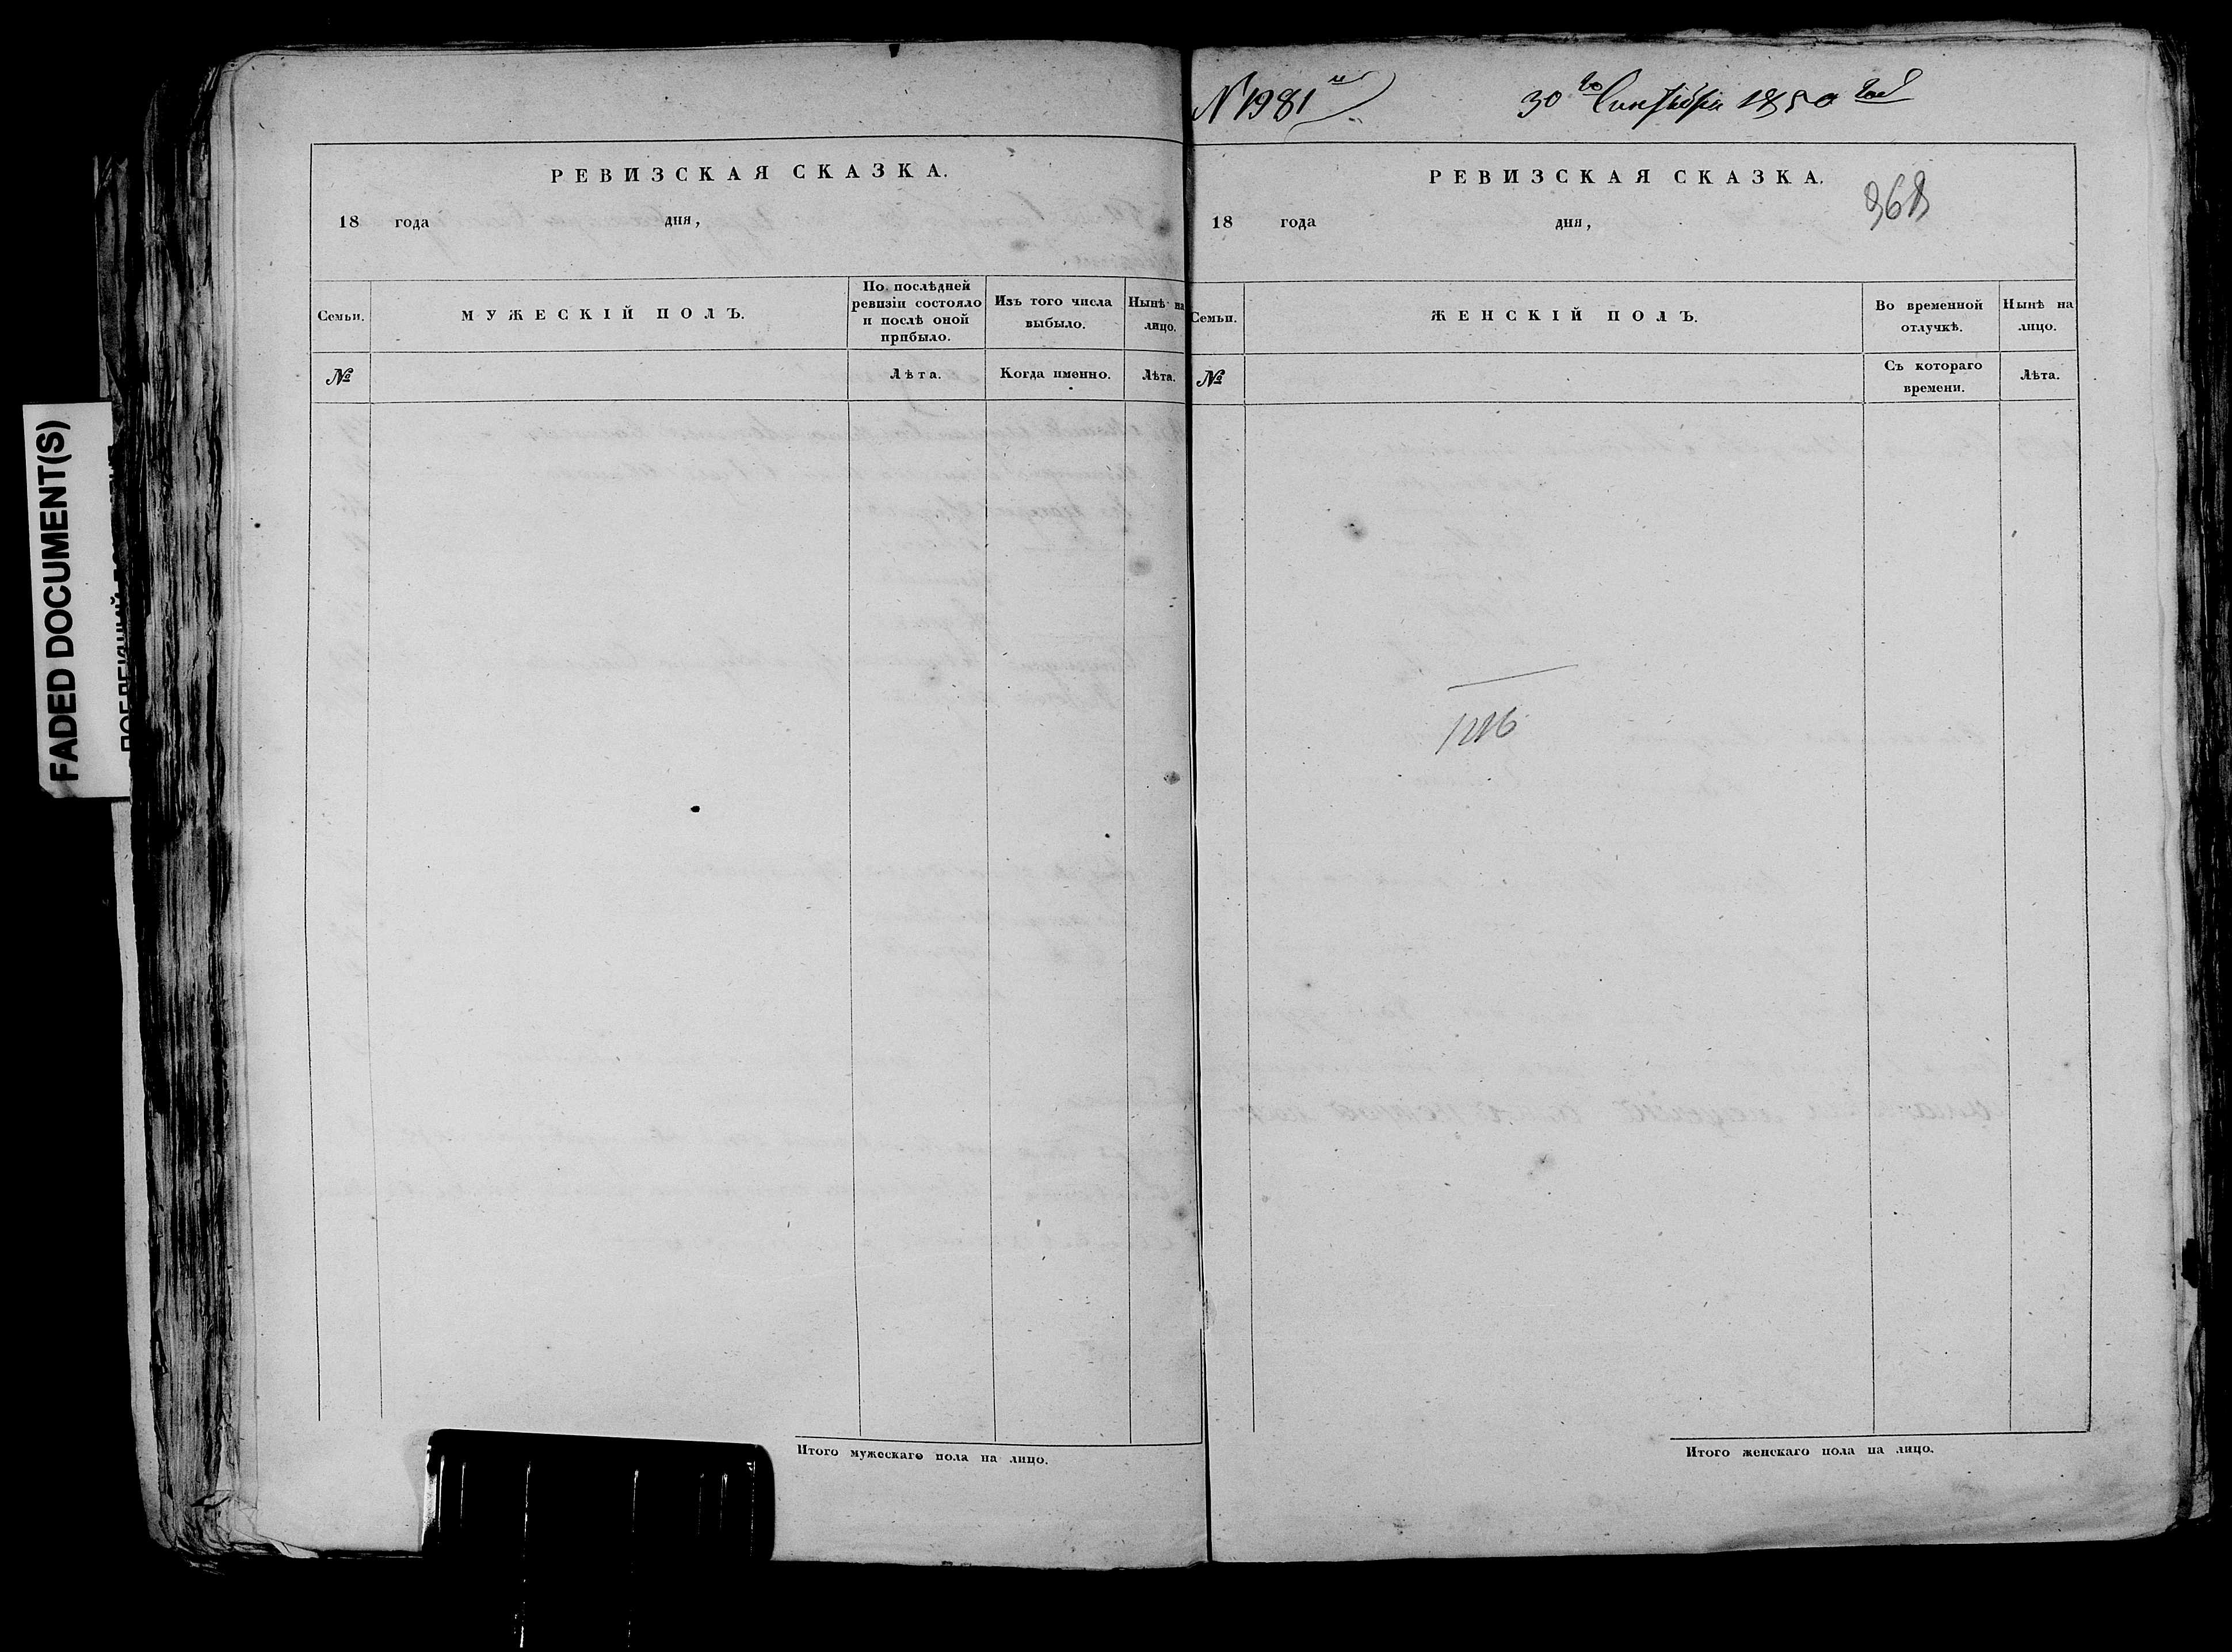 FADED DOCUMENT(S)
РЕВИЗСКАЯ СКАЗКА.
18 года дня,
Семьи.
МУЖЕСКІЙ ПОЛЪ.
По послѣдней
ревизіи состояло
и послѣ оной
прибыло.
Изъ того числа
выбыло.
Нынѣ на
лицо.
№
Лѣта.
Когда именно.
Лѣта.
Итого мужескаго пола на лицо.
N 1981
30го Сентября 1850 года
РЕВИЗСКАЯ СКАЗКА.
18 года дня,
Семьи.
ЖЕНСКІЙ ПОЛЪ.
Во временной
отлучкѣ.
Нынѣ на
лицо.
№
Съ котораго
времени.
Лѣта.
Итого женскаго пола на лицо.